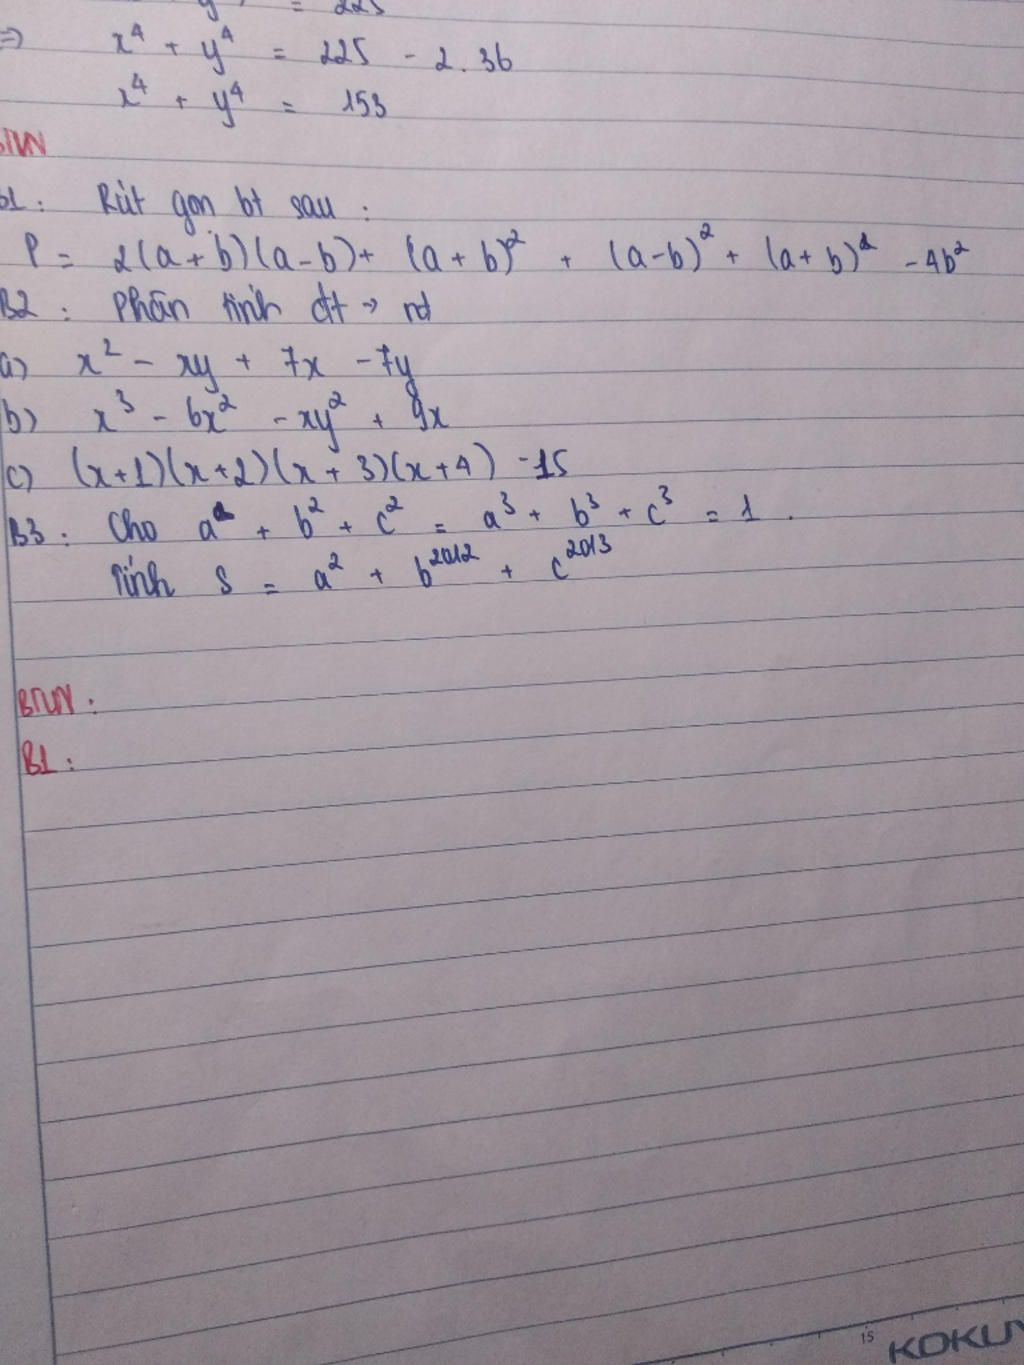 = 225
=> x⁴ + y⁴ = 225 - 2.36
x⁴ + y⁴ = 153
BTVN
B1: Rút gọn bt sau:
P = 2(a+b)(a-b)+ (a+b)² + (a-b)² + (a+b)² - 4b²
B2: Phân tính đt → nt
a) x² - xy + 7x - 7y
b) x³ - 6x² - xy² + 9x
c) (x+1)(x+2)(x+3)(x+4) - 15
B3: Cho a² + b² + c² = a³ + b³ + c³ = 1.
Tính S = a² + b²⁰¹² + c²⁰¹³
BTVN:
B1:
15 KOKUY